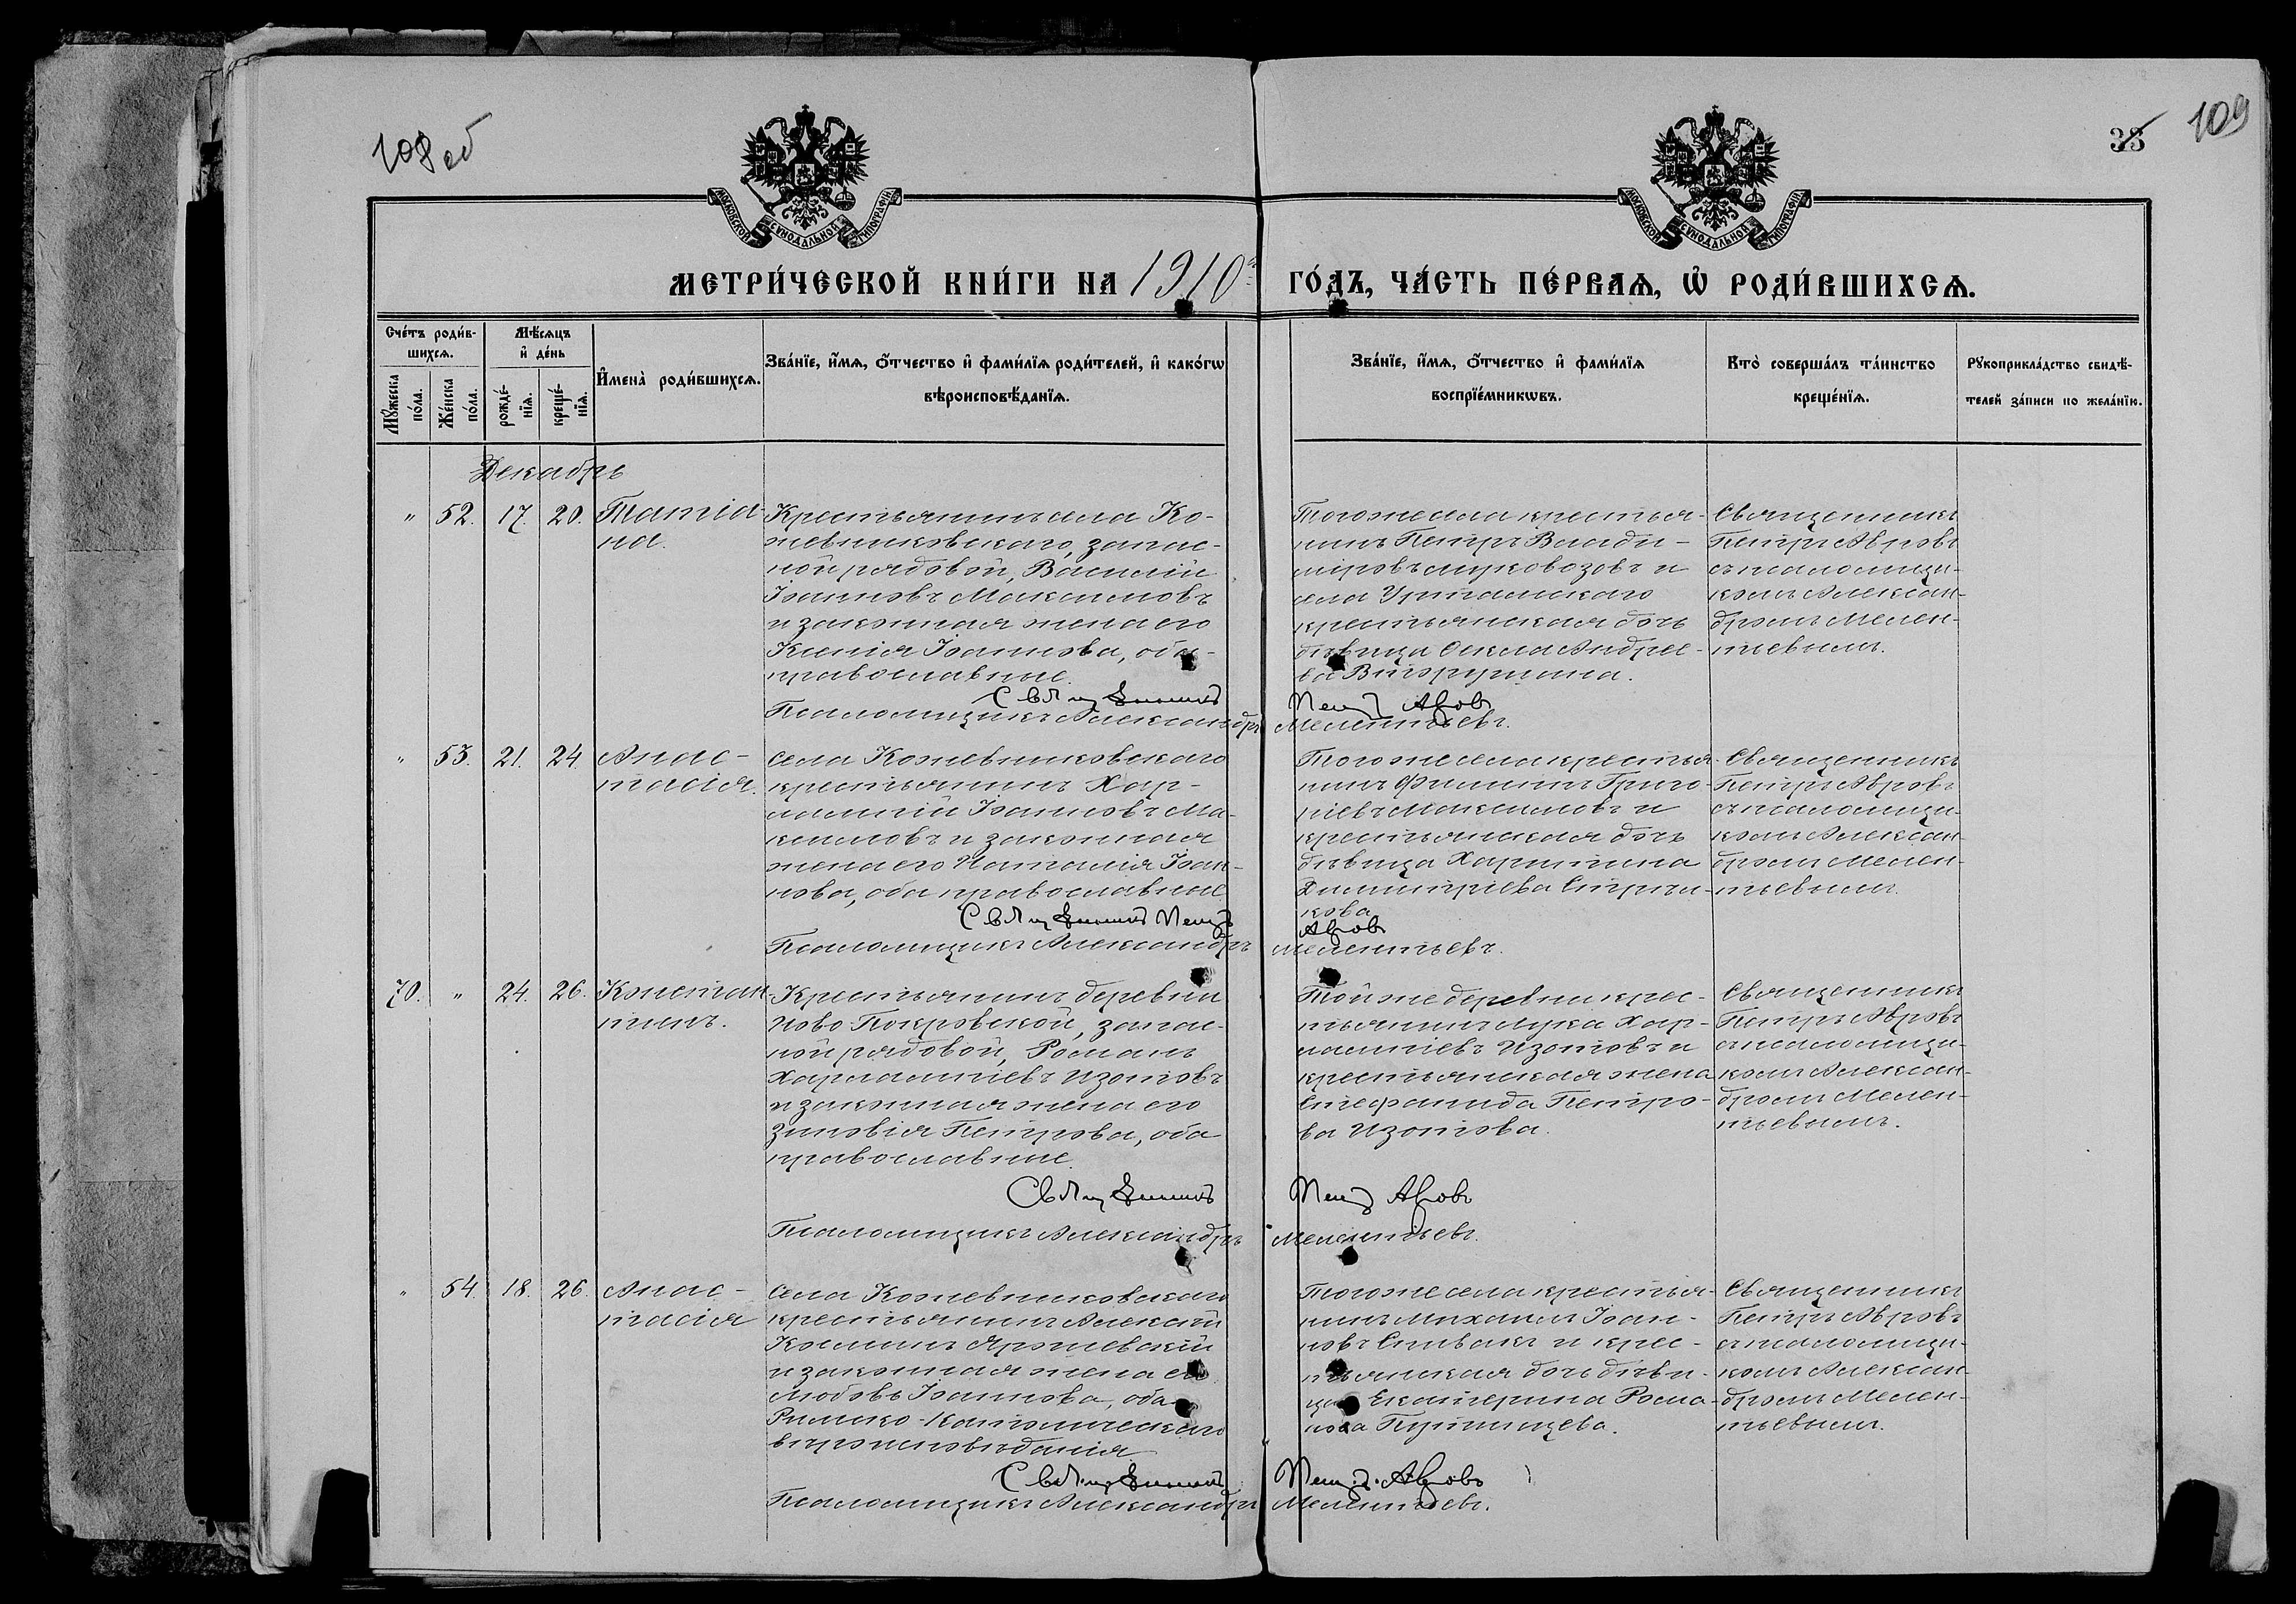 108 об
109
33
МОСКОВСКОЙ СѴНОДАЛЬНОЙ ТИПОГРАФІИ
МОСКОВСКОЙ СѴНОДАЛЬНОЙ ТИПОГРАФІИ
МЕТРИ́ЧЕСКОЙ КНИ́ГИ НА 1910 ГО́ДЪ, ЧА́СТЬ ПЕ́РВАѦ, Ѡ РОДИ́ВШИХСѦ.
Сче́тъ роди́в-
шихсѧ.
Мꙋ́жеска
по́ла.
Же́нска
по́ла.
Мѣ́сѧцъ
и҆ де́нь
рожде́-
нїѧ.
креще́-
нїѧ.
И҆мена̀ роди́вшихсѧ.
Зва́нїе, и҆́мѧ, ѻ҆́тчество и҆ фами́лїѧ роди́телей, и҆ како́гѡ
вѣроисповѣ́данїѧ.
Зва́нїе, и҆́мѧ, ѻ҆́тчество и҆ фами́лїѧ
воспрїе́мникѡвъ.
Кто̀ соверша́лъ та́инство
креще́нїѧ.
Рꙋкоприкла́дство свидѣ́-
телей за́писи по жела́нїю.
Декабрь
" 52. 17. 20. Татіа-
на.
Крестьянинъ села Ко-
жевниковскаго, запас-
ной рядовой, Василій
Іоанновъ Максимовъ
и законная жена его
Ксенія Іоаннова, оба
православные.
Того же села крестья-
нинъ Петръ Влади-
міровъ Муковозовъ и
села Уртамскаго
крестьянская дочь
дѣвица Текла Андрее-
ва
Священникъ
Петръ Авровъ
съ псаломщи-
комъ Алексан-
дромъ Мелен-
тьевымъ.
Священникъ Петръ Авровъ
Псаломщикъ Александръ Мелентьевъ.
" 53. 21. 24. Анас-
тасія.
Села Кожевниковскаго
крестьянинъ Хар-
лампій Іоанновъ Ма-
ксимовъ и законная
жена его Наталія Іоан-
нова, оба православные
Того же села крестья-
нинъ Филиппъ Григо-
ріевъ Максимовъ и
крестьянская дочь
дѣвица Харитина
Димитріева Стрѣл-
кова
Священникъ
Петръ Авровъ
съ псаломщи-
комъ Алексан-
дромъ Мелен-
тьевымъ.
Священникъ Петръ Авровъ
Псаломщикъ Александръ Мелентьевъ.
70. " 24. 26. Констан-
тинъ.
Крестьянинъ деревни
Ново Покровской, запас-
ной рядовой, Романъ
Харлампіевъ Изотовъ
и законная жена его
Зиновія Петрова, оба
православные.
Той же деревни крес-
тьянинъ Лука Хар-
лампіевъ Изотовъ и
крестьянская жена
Стефанида Петро-
ва Изотова.
Священникъ
Петръ Авровъ
съ псаломщи-
комъ Алексан-
дромъ Мелен-
тьевымъ.
Священникъ Петръ Авровъ
Псаломщикъ Александръ Мелентьевъ.
" 54. 18. 26. Анас-
тасія
Села Кожевниковскаго
крестьянинъ Алексѣй
Косминъ Ярошевскій
и законная жена его
Любовь Іоаннова, оба
Римско-Католическаго
вѣроисповѣданія
Того же села крестья-
нинъ Михаилъ Іоан-
новъ Спивакъ и крес-
тьянская дочь дѣви-
ца Екатерина Рома-
нова
Священникъ
Петръ Авровъ
съ псаломщи-
комъ Алексан-
дромъ Мелен-
тьевымъ.
Священникъ Петръ Авровъ
Псаломщикъ Александръ Мелентьевъ.